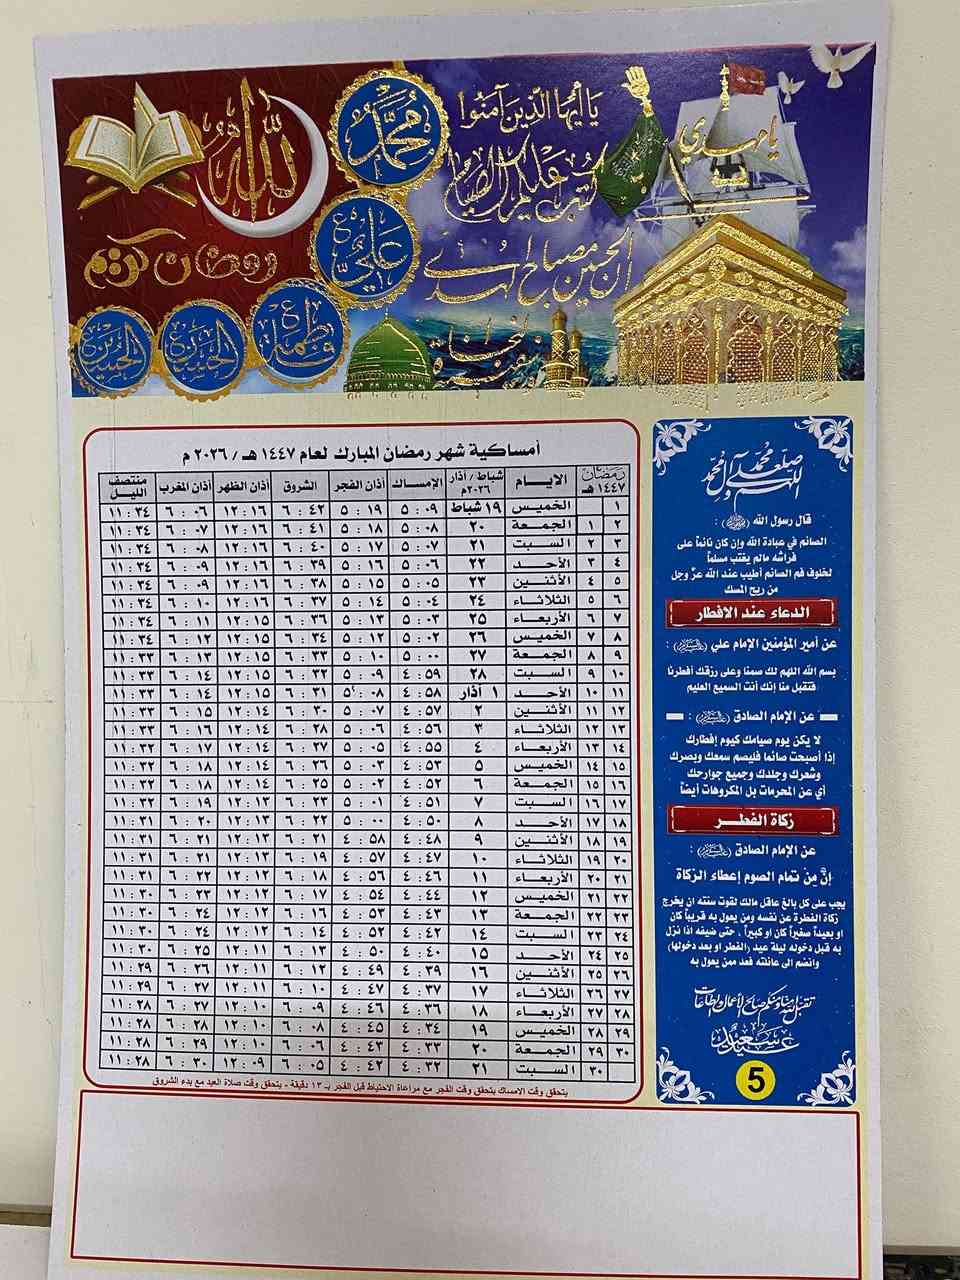 الله
رمضان كريم
محمد
علي
فاطمة
الحسن
الحسين
يا أيها الذين آمنوا
كتب عليكم الصيام
ان الحسين مصباح الهدى
وسفينة نجاة
يا مهدي
أمساكية شهر رمضان المبارك لعام ١٤٤٧ هـ / ٢٠٢٦ م
رمضان ١٤٤٧ هـ الايام شباط / آذار ٢٠٢٦م الإمساك أذان الفجر الشروق أذان الظهر أذان المغرب منتصف الليل
١ الخميس ١٩ شباط ٥ : ٠٩ ٥ : ١٩ ٦ : ٤٢ ١٢ : ١٦ ٦ : ٠٦ ١١ : ٣٤
٢ ١ الجمعة ٢٠ ٥ : ٠٨ ٥ : ١٨ ٦ : ٤١ ١٢ : ١٦ ٦ : ٠٧ ١١ : ٣٤
٣ ٢ السبت ٢١ ٥ : ٠٧ ٥ : ١٧ ٦ : ٤٠ ١٢ : ١٦ ٦ : ٠٨ ١١ : ٣٤
٤ ٣ الأحد ٢٢ ٥ : ٠٦ ٥ : ١٦ ٦ : ٣٩ ١٢ : ١٦ ٦ : ٠٩ ١١ : ٣٤
٥ ٤ الأثنين ٢٣ ٥ : ٠٥ ٥ : ١٥ ٦ : ٣٨ ١٢ : ١٦ ٦ : ٠٩ ١١ : ٣٤
٦ ٥ الثلاثاء ٢٤ ٥ : ٠٤ ٥ : ١٤ ٦ : ٣٧ ١٢ : ١٦ ٦ : ١٠ ١١ : ٣٤
٧ ٦ الأربعاء ٢٥ ٥ : ٠٣ ٥ : ١٣ ٦ : ٣٦ ١٢ : ١٥ ٦ : ١١ ١١ : ٣٤
٨ ٧ الخميس ٢٦ ٥ : ٠٢ ٥ : ١٢ ٦ : ٣٤ ١٢ : ١٥ ٦ : ١٢ ١١ : ٣٤
٩ ٨ الجمعة ٢٧ ٥ : ٠٠ ٥ : ١٠ ٦ : ٣٣ ١٢ : ١٥ ٦ : ١٣ ١١ : ٣٣
١٠ ٩ السبت ٢٨ ٤ : ٥٩ ٥ : ٠٩ ٦ : ٣٢ ١٢ : ١٥ ٦ : ١٤ ١١ : ٣٣
١١ ١٠ الأحد ١ آذار ٤ : ٥٨ ٥ : ٠٨ ٦ : ٣١ ١٢ : ١٥ ٦ : ١٤ ١١ : ٣٣
١٢ ١١ الأثنين ٢ ٤ : ٥٧ ٥ : ٠٧ ٦ : ٣٠ ١٢ : ١٤ ٦ : ١٥ ١١ : ٣٣
١٣ ١٢ الثلاثاء ٣ ٤ : ٥٦ ٥ : ٠٦ ٦ : ٢٨ ١٢ : ١٤ ٦ : ١٦ ١١ : ٣٣
١٤ ١٣ الأربعاء ٤ ٤ : ٥٥ ٥ : ٠٥ ٦ : ٢٧ ١٢ : ١٤ ٦ : ١٧ ١١ : ٣٢
١٥ ١٤ الخميس ٥ ٤ : ٥٣ ٥ : ٠٣ ٦ : ٢٦ ١٢ : ١٤ ٦ : ١٨ ١١ : ٣٢
١٦ ١٥ الجمعة ٦ ٤ : ٥٢ ٥ : ٠٢ ٦ : ٢٥ ١٢ : ١٤ ٦ : ١٨ ١١ : ٣٢
١٧ ١٦ السبت ٧ ٤ : ٥١ ٥ : ٠١ ٦ : ٢٣ ١٢ : ١٣ ٦ : ١٩ ١١ : ٣٢
١٨ ١٧ الأحد ٨ ٤ : ٥٠ ٥ : ٠٠ ٦ : ٢٢ ١٢ : ١٣ ٦ : ٢٠ ١١ : ٣١
١٩ ١٨ الأثنين ٩ ٤ : ٤٨ ٤ : ٥٨ ٦ : ٢١ ١٢ : ١٣ ٦ : ٢١ ١١ : ٣١
٢٠ ١٩ الثلاثاء ١٠ ٤ : ٤٧ ٤ : ٥٧ ٦ : ١٩ ١٢ : ١٣ ٦ : ٢١ ١١ : ٣١
٢١ ٢٠ الأربعاء ١١ ٤ : ٤٦ ٤ : ٥٦ ٦ : ١٨ ١٢ : ١٢ ٦ : ٢٢ ١١ : ٣١
٢٢ ٢١ الخميس ١٢ ٤ : ٤٤ ٤ : ٥٤ ٦ : ١٧ ١٢ : ١٢ ٦ : ٢٣ ١١ : ٣٠
٢٣ ٢٢ الجمعة ١٣ ٤ : ٤٣ ٤ : ٥٣ ٦ : ١٦ ١٢ : ١٢ ٦ : ٢٤ ١١ : ٣٠
٢٤ ٢٣ السبت ١٤ ٤ : ٤٢ ٤ : ٥٢ ٦ : ١٤ ١٢ : ١٢ ٦ : ٢٤ ١١ : ٣٠
٢٥ ٢٤ الأحد ١٥ ٤ : ٤٠ ٤ : ٥٠ ٦ : ١٣ ١٢ : ١١ ٦ : ٢٥ ١١ : ٣٠
٢٦ ٢٥ الأثنين ١٦ ٤ : ٣٩ ٤ : ٤٩ ٦ : ١٢ ١٢ : ١١ ٦ : ٢٦ ١١ : ٢٩
٢٧ ٢٦ الثلاثاء ١٧ ٤ : ٣٧ ٤ : ٤٧ ٦ : ١٠ ١٢ : ١١ ٦ : ٢٧ ١١ : ٢٩
٢٨ ٢٧ الأربعاء ١٨ ٤ : ٣٦ ٤ : ٤٦ ٦ : ٠٩ ١٢ : ١٠ ٦ : ٢٧ ١١ : ٢٨
٢٩ ٢٨ الخميس ١٩ ٤ : ٣٤ ٤ : ٤٥ ٦ : ٠٨ ١٢ : ١٠ ٦ : ٢٨ ١١ : ٢٨
٣٠ ٢٩ الجمعة ٢٠ ٤ : ٣٣ ٤ : ٤٣ ٦ : ٠٦ ١٢ : ١٠ ٦ : ٢٩ ١١ : ٢٨
٣٠ السبت ٢١ ٤ : ٣٢ ٤ : ٤٢ ٦ : ٠٥ ١٢ : ٠٩ ٦ : ٣٠ ١١ : ٢٨
يتحقق وقت الامساك بتحقق وقت الفجر مع مراعاة الاحتياط قبل الفجر بـ ١٣ دقيقة - يتحقق وقت صلاة العيد مع بدء الشروق
اللهم صل على محمد وآل محمد
قال رسول الله (ﷺ) :
الصائم في عبادة الله وإن كان نائماً على
فراشه مالم يغتب مسلماً
لخلوف فم الصائم أطيب عند الله عزّ وجل
من ريح المسك
الدعاء عند الافطار
عن أمير المؤمنين الإمام علي (عليه السلام) :
بسم الله اللهم لك صمنا وعلى رزقك أفطرنا
فتقبل منا إنك أنت السميع العليم
عن الإمام الصادق (عليه السلام) :
لا يكن يوم صيامك كيوم إفطارك
إذا أصبحت صائما فليصم سمعك وبصرك
وشعرك وجلدك وجميع جوارحك
أي عن المحرمات بل المكروهات أيضاً
زكاة الفطر
عن الإمام الصادق (عليه السلام) :
إنَّ مِنْ تمام الصوم إعطاء الزكاة
يجب على كل بالغ عاقل مالك لقوت سنته ان يخرج
زكاة الفطرة عن نفسه ومن يعول به قريباً كان
او بعيداً صغيراً كان او كبيراً ، حتى ضيفه اذا نزل
به قبل دخوله ليلة عيد (الفطر او بعد دخولها)
وانضم الى عائلته فعد ممن يعول به
تقبل الله منا ومنكم صالح الأعمال والطاعات
عيد سعيد
5